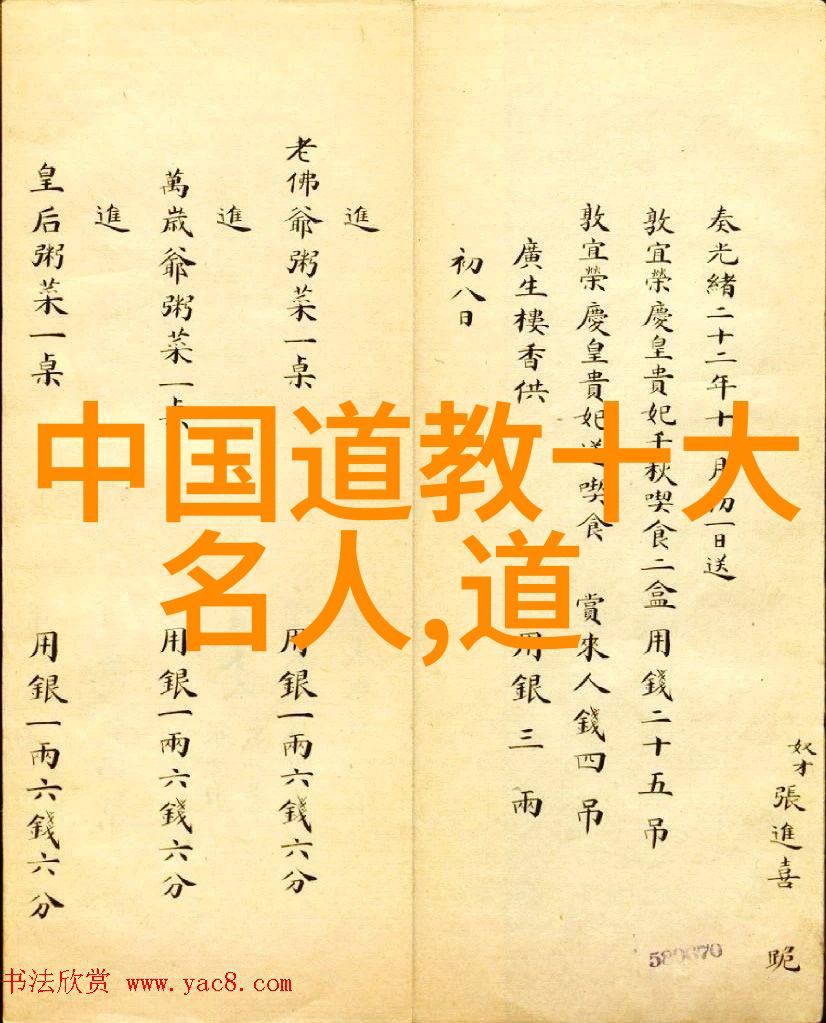 奴才張進喜 跪
奏光緒二十二年十月初一日送
敦宜榮慶皇貴妃千秋喫食二盒 用錢二十五吊
敦宜榮慶皇貴妃送喫食 賞來人錢四吊
廣生樓香供 用銀三兩
初八日
進
老佛爺粥菜一桌 用銀一兩六錢六分
進
萬歲爺粥菜一桌 用銀一兩六錢六分
進
皇后粥菜一桌 用銀一兩六錢六分
中国道教十大
名人,道
书法欣赏 www.yac8.com